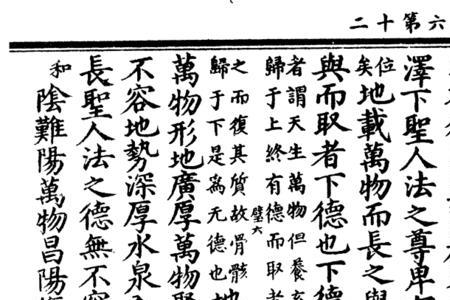 六第十二
澤下聖人法之尊卑
位
矣
地載萬物而長之與
與而取者下德也下德
者謂天生萬物但養
歸于上終有德而取者
璧六
之而復其質故骨骸
歸于下是爲无德也
地
萬物形地廣厚萬物聚
不容地勢深厚水泉入
長聖人法之德無不容
和
陰難陽萬物昌陽